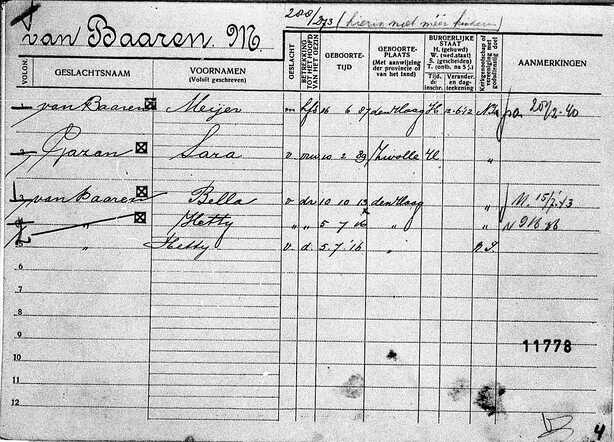 van Baaren, M.
200/273 (hierin niet méér
VOLGN.
GESLACHTSNAAM
VOORNAMEN
(Voluit geschreven)
GESLACHT
BETREKKING TOT HET HOOFD VAN HET GEZIN
GEBOORTE-
TIJD
GEBOORTE-
PLAATS
(Met aanwijzing der provincie of van het land)
BURGERLIJKE STAAT
H. (gehuwd)
W. (wed.staat)
S. (gescheiden)
T. (ontb. na 5 j.)
Tijd. de inschr.
Verander. en dag-teekening
Kerkgenootschap of vereeniging met godsdienstig doel
AANMERKINGEN
1 van Baaren Meijer m hfd 16 6 87 den Haag H 12-6-12 N.I.
2 Gazan Sara v vrw 10 2 89 Zwolle H "
3 van Baaren Bella v dr 10 10 13 den Haag " M. 15/2 '13
4 " Hetty " " 5 - 7 16 " "
5 " Hetty v. d. 5-7-'16 "
6
7
8
9
10
11
12
11778
4